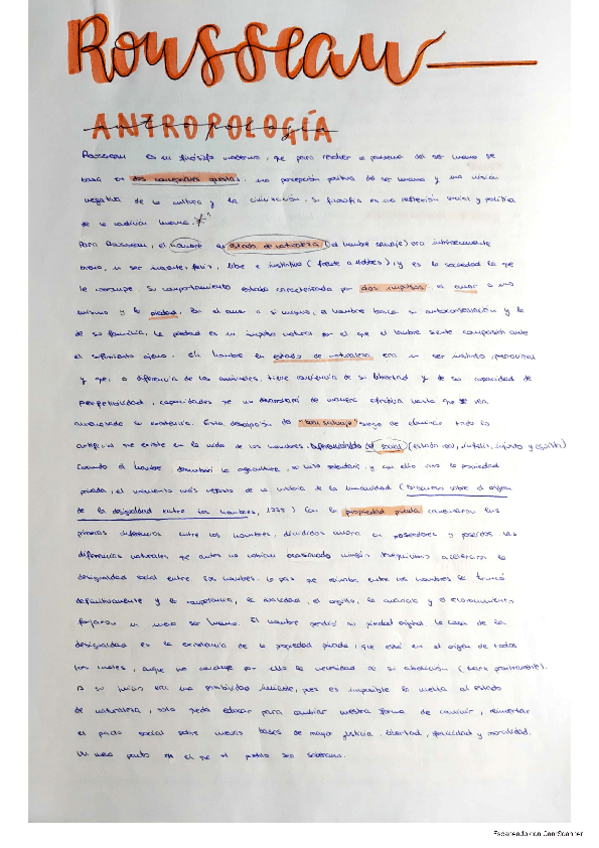 Rousseau
ANTROPOLOGÍA
Rousseau es un filósofo moderno, que para resolver el problema del ser humano se
basa en dos concepciones opuestas: una percepción positiva del ser humano y una visión
negativa de la cultura y la civilización, su filosofía es una reflexión social y política
de la condición humana.
Para Rousseau, el hombre en estado de naturaleza (el hombre salvaje) era
bueno, un ser inocente, feliz, libre e instintivo (frente a Hobbes) y es la sociedad la que
le corrompe. Su comportamiento estaba caracterizado por dos impulsos: el amor a uno
mismo y la piedad. En el amor a sí mismo, el hombre busca su autoconservación y la
de su familia. La piedad es un impulso natural por el que el hombre siente compasión ante
el sufrimiento ajeno. El hombre en estado de naturaleza era un ser
y que, a diferencia de los animales, tiene conciencia de su libertad y de su capacidad de
perfectibilidad, capacidades que se desarrollan de manera efectiva hasta que
su existencia. Esta descripción del "buen salvaje" todo lo
artificial que existe en la vida de los hombres. del social (estado real, infeliz, injusto y egoísta)
Cuando el hombre descubrió la agricultura, se hizo sedentario, y con ello vino la propiedad
privada, el momento más nefasto de la historia de la humanidad (Discurso sobre el origen
de la desigualdad entre los hombres, 1755) Con la propiedad privada comenzaron las
primeras diferencias entre los hombres, divididos ahora en poseedores y poseídos. Las
diferencias naturales que antes no habían ocasionado ningún aceleraron la
desigualdad social entre los hombres. La paz que reinaba entre los hombres se truncó
definitivamente y la competencia, la rivalidad, el orgullo, la avaricia y el
forjaron un nuevo ser humano. El hombre perdió su piedad original. La causa de la
desigualdad es la existencia de la propiedad privada, que está en el origen de todos
los males, aunque no concluye por ello la necesidad de su abolición
A su juicio era una posibilidad inviable, pues es imposible la vuelta al estado
de naturaleza, solo queda educar para cambiar nuestra forma de convivir, reinventar
el pacto social sobre nuevas bases de mayor justicia, libertad, y moralidad.
Un nuevo pacto en el que el pueblo sea soberano.
Escaneado con CamScanner